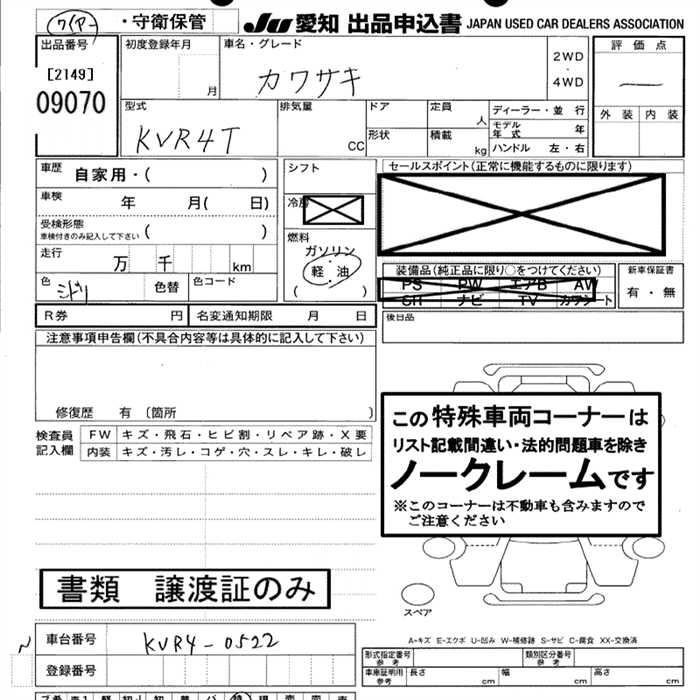 ワイヤー ・守衛保管 JU 愛知 出品申込書 JAPAN USED CAR DEALERS ASSOCIATION
出品番号 初度登録年月 車名・グレード 評価点
[2149] 月 カワサキ 2WD・4WD
09070 外装 内装
型式 排気量 ドア 定員 ディーラー・並行
KVR4T CC 人 モデル年式 年
形状 積載 kg ハンドル 左・右
車歴 自家用・( ) シフト セールスポイント(正常に機能するものに限ります)
車検 年 月( 日)
受検形態 車検付きのみ記入して下さい ( ) 燃料
走行 万 千 km ガソリン・軽油 ( )
装備品(純正品に限り○をつけてください) 新車保証書
色 ミドリ 色替 色コード PS PW エアB AW 有・無
SR ナビ TV カワシート
R券 円 名変通知期限 月 日 後日品
注意事項申告欄(不具合内容等は具体的に記入して下さい)
修復歴 有 〔箇所 〕
この特殊車両コーナーは
リスト記載間違い・法的問題車を除き
ノークレームです
※このコーナーは不動車も含みますので
ご注意ください
検査員記入欄 FW キズ・飛石・ヒビ割・リペア跡・X要
内装 キズ・汚レ・コゲ・穴・スレ・キレ・破レ
書類 譲渡証のみ
スペア
A-キズ E-エクボ U-凹み W-補修跡 S-サビ C-腐食 XX-交換済
車台番号 KVR4-0522
登録番号
形式指定番号 参考 類別区分番号 参考
車庫証明用 参考 長さ cm 幅 cm 高さ cm